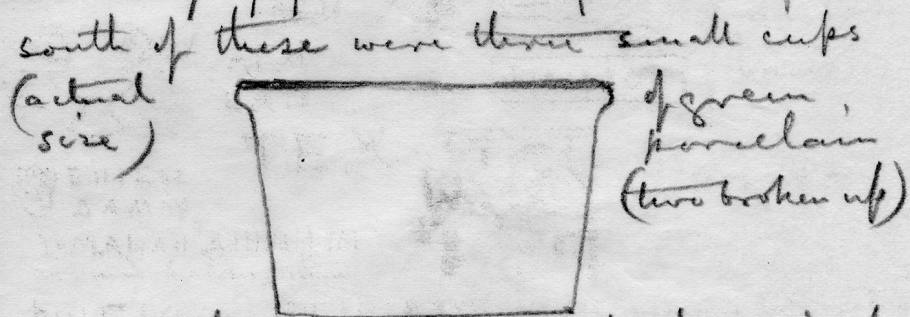 south of these were three small cups
(actual
size)
of green
porcelain
(two broken up)